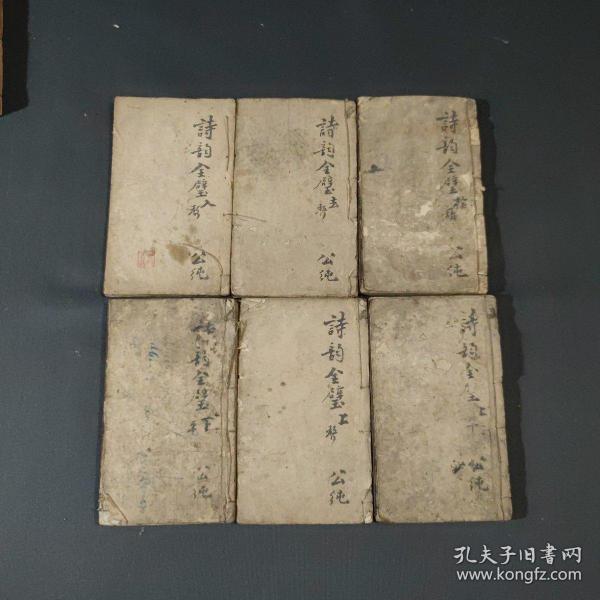 詩韵全璧入聲
公純
詩韵全璧去聲
公純
詩韵全璧
公純
韵全璧下平
公純
詩韵全璧上聲
公純
詩韵全璧上平
公純
孔夫子旧书网
www.kongfz.com